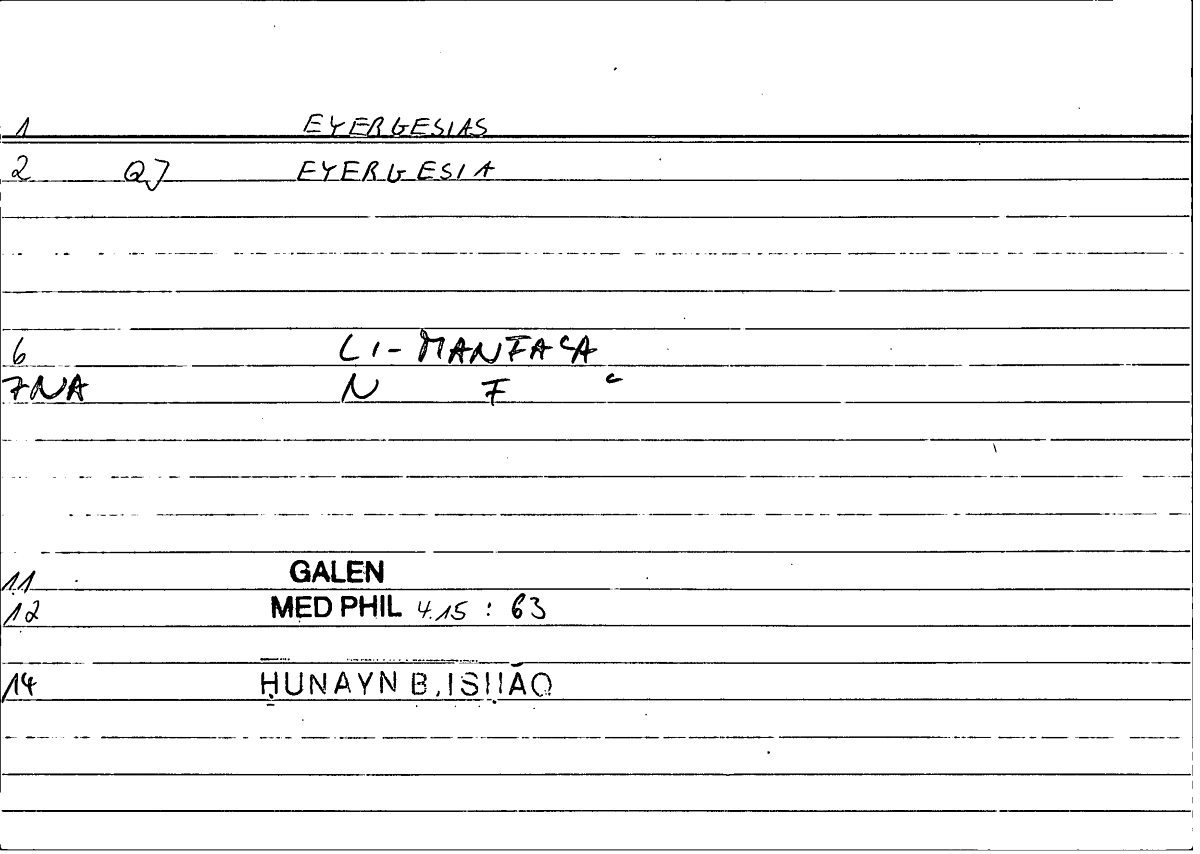 1 EYERGESIAS
2 QJ EYERGESIA
6 LI-MANFAʿA
7NA N F ʿ
11 GALEN
12 MED PHIL 4.15 : 63
14 ḤUNAYN B. ISḤĀQ